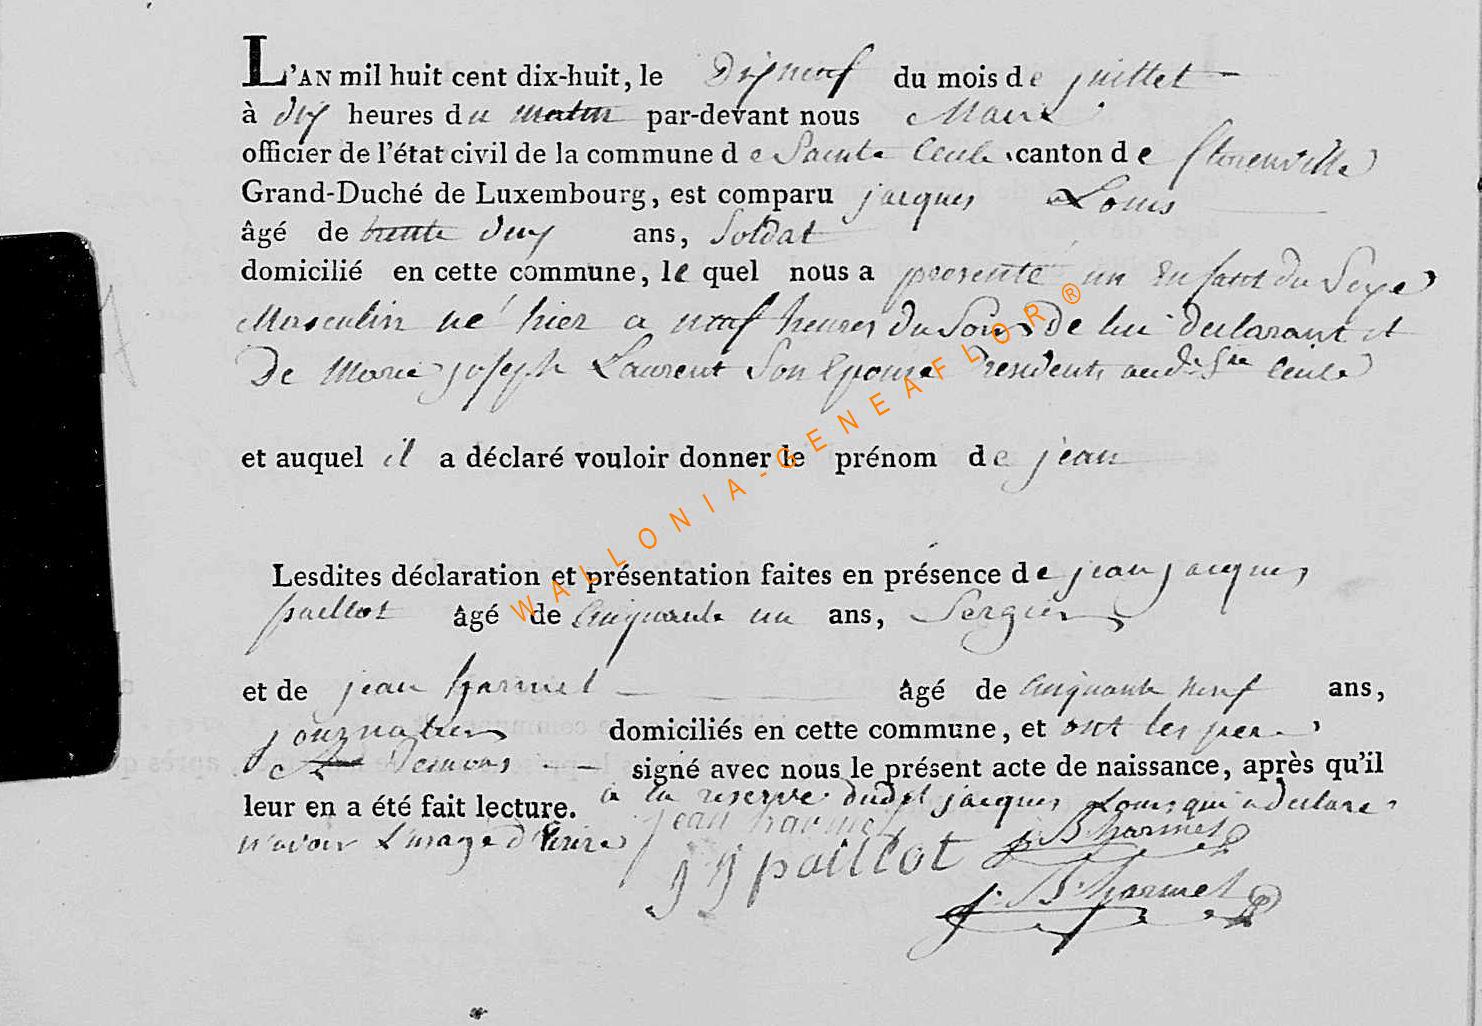 L'AN mil huit cent dix-huit, le Dixneuf du mois de juillet
à dix heures du matin par-devant nous Maire
officier de l'état civil de la commune de Sainte Cecile canton de florenville
Grand-Duché de Luxembourg, est comparu jacques Louis
âgé de trente deux ans, Soldat
domicilié en cette commune, le quel nous a presenté un Enfant du Sexe
Masculin né hier a neuf heures du Soir de lui declarant et
De Marie joseph Laurent Son Epouse residents aud. Ste Cecile
et auquel il a déclaré vouloir donner le prénom de jean
WALLONIA-GENEAFLOR®
Lesdites déclaration et présentation faites en présence de jean jacques
paillot âgé de Cinquante un ans, Sergier
et de jean harmel âgé de Cinquante neuf ans,
journalier domiciliés en cette commune, et ont les pere
et temoins signé avec nous le présent acte de naissance, après qu'il
leur en a été fait lecture. a la reserve dudit jacques Louis qui a declare
n'avoir L'usage d'Ecrire jean harmel
j j paillot j: B: harmel
j: B: harmel